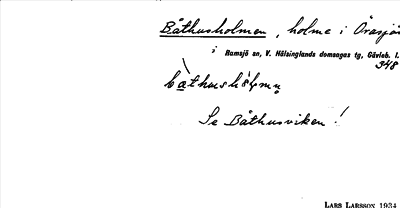 Båthusholmen, holme i Örasjön
i Ramsjö sn, V. Hälsinglands domsagas tg, Gävleb. l.
348
Se Båthusviken!
LARS LARSSON 1934